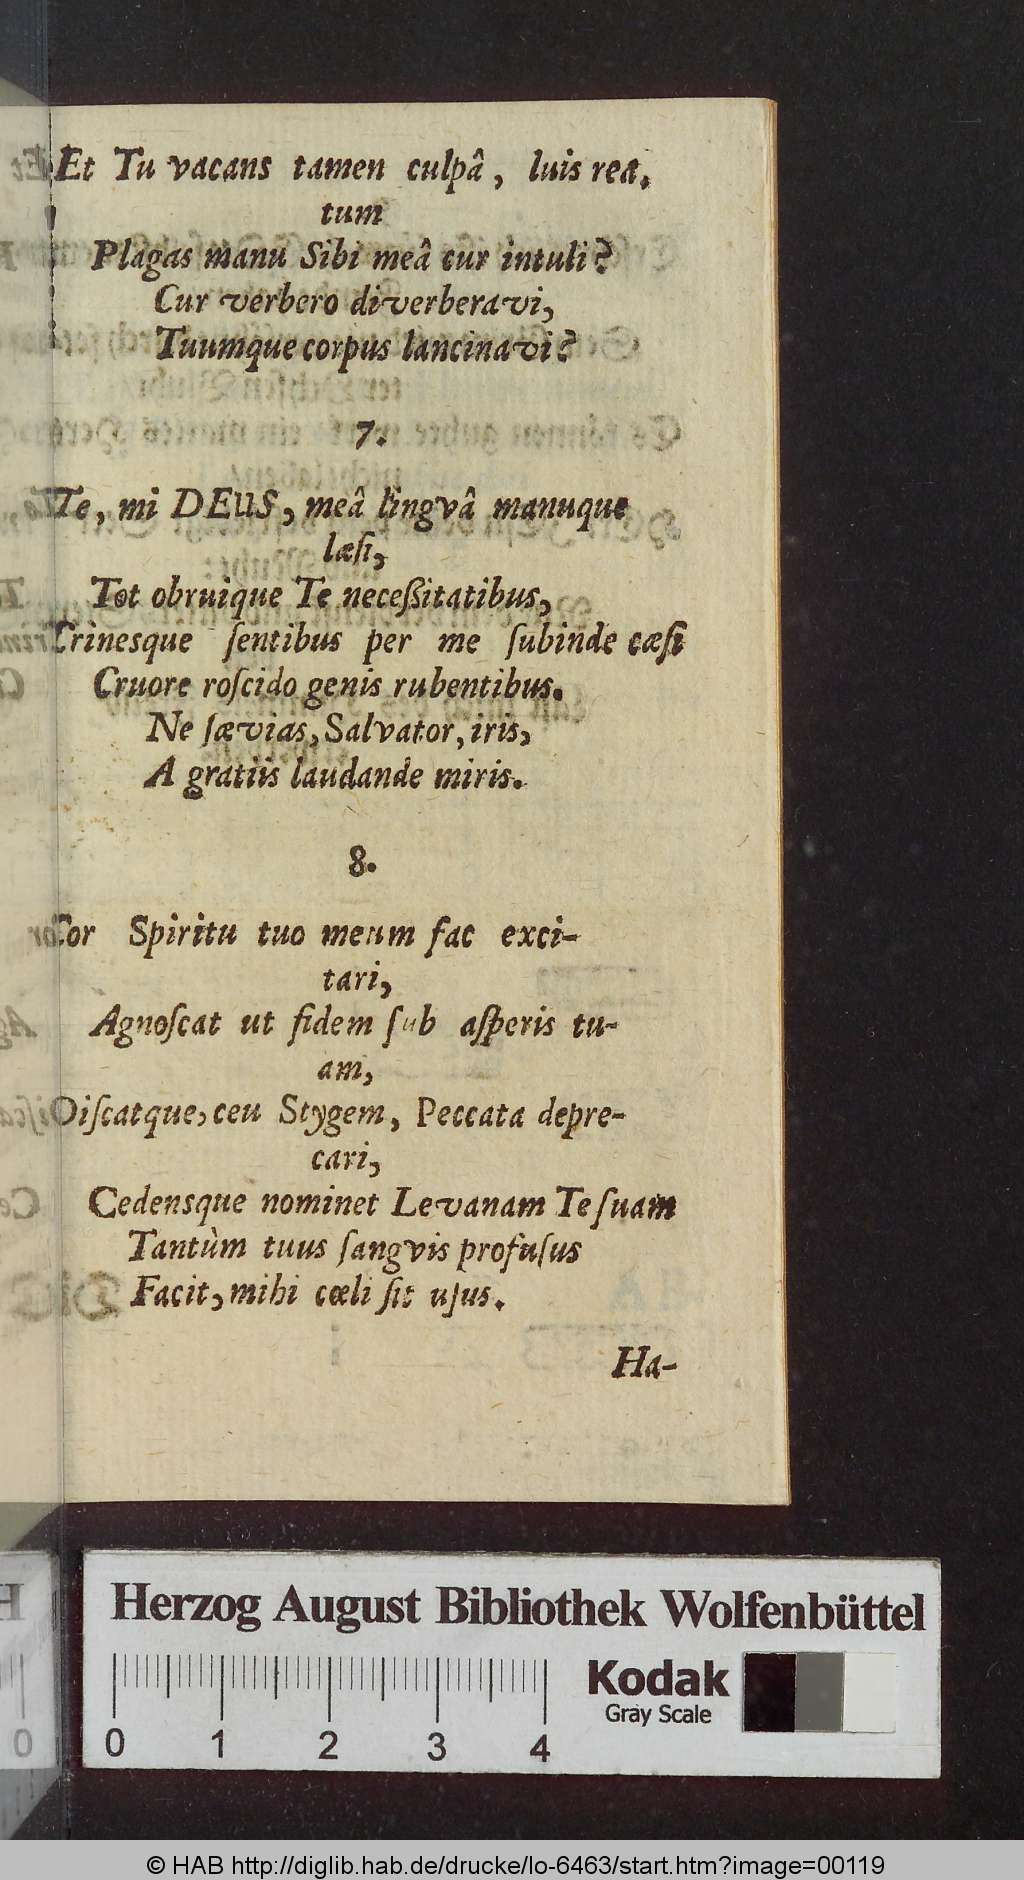 Et Tu vacans tamen culpâ, luis rea-
tum
Plagas manu Sibi meâ cur intuli?
Cur verbero diverberavi,
Tuumque corpus lancinavi?
7.
Te, mi DEUS, meâ lingvâ manuque
læſi,
Tot obruique Te neceßitatibus,
Crinesque ſentibus per me ſubinde cæſi
Cruore roſcido genis rubentibus.
Ne ſævias, Salvator, iris,
A gratiis laudande miris.
8.
Cor Spiritu tuo meum fac exci-
tari,
Agnoſcat ut fidem ſub aſperis tu-
am,
Diſcatque, ceu Stygem, Peccata depre-
cari,
Cedensque nominet Levanam Te ſuam
Tantùm tuus ſangvis profuſus
Facit, mihi cœli ſit uſus.
Ha-
Herzog August Bibliothek Wolfenbüttel
Kodak
Gray Scale
0 1 2 3 4
© HAB http://diglib.hab.de/drucke/lo-6463/start.htm?image=00119